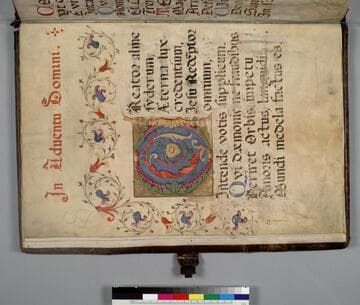 In Adventu Domini.
CReator alme
syderum,
Æterna lux
credentium,
Jesu Redēptor
omnium,
Intende votis supplicum.
Qui dæmonis ne fraudibus
Periret Orbis, impetu
Amoris actus, languidi
Mundi medela factus es.